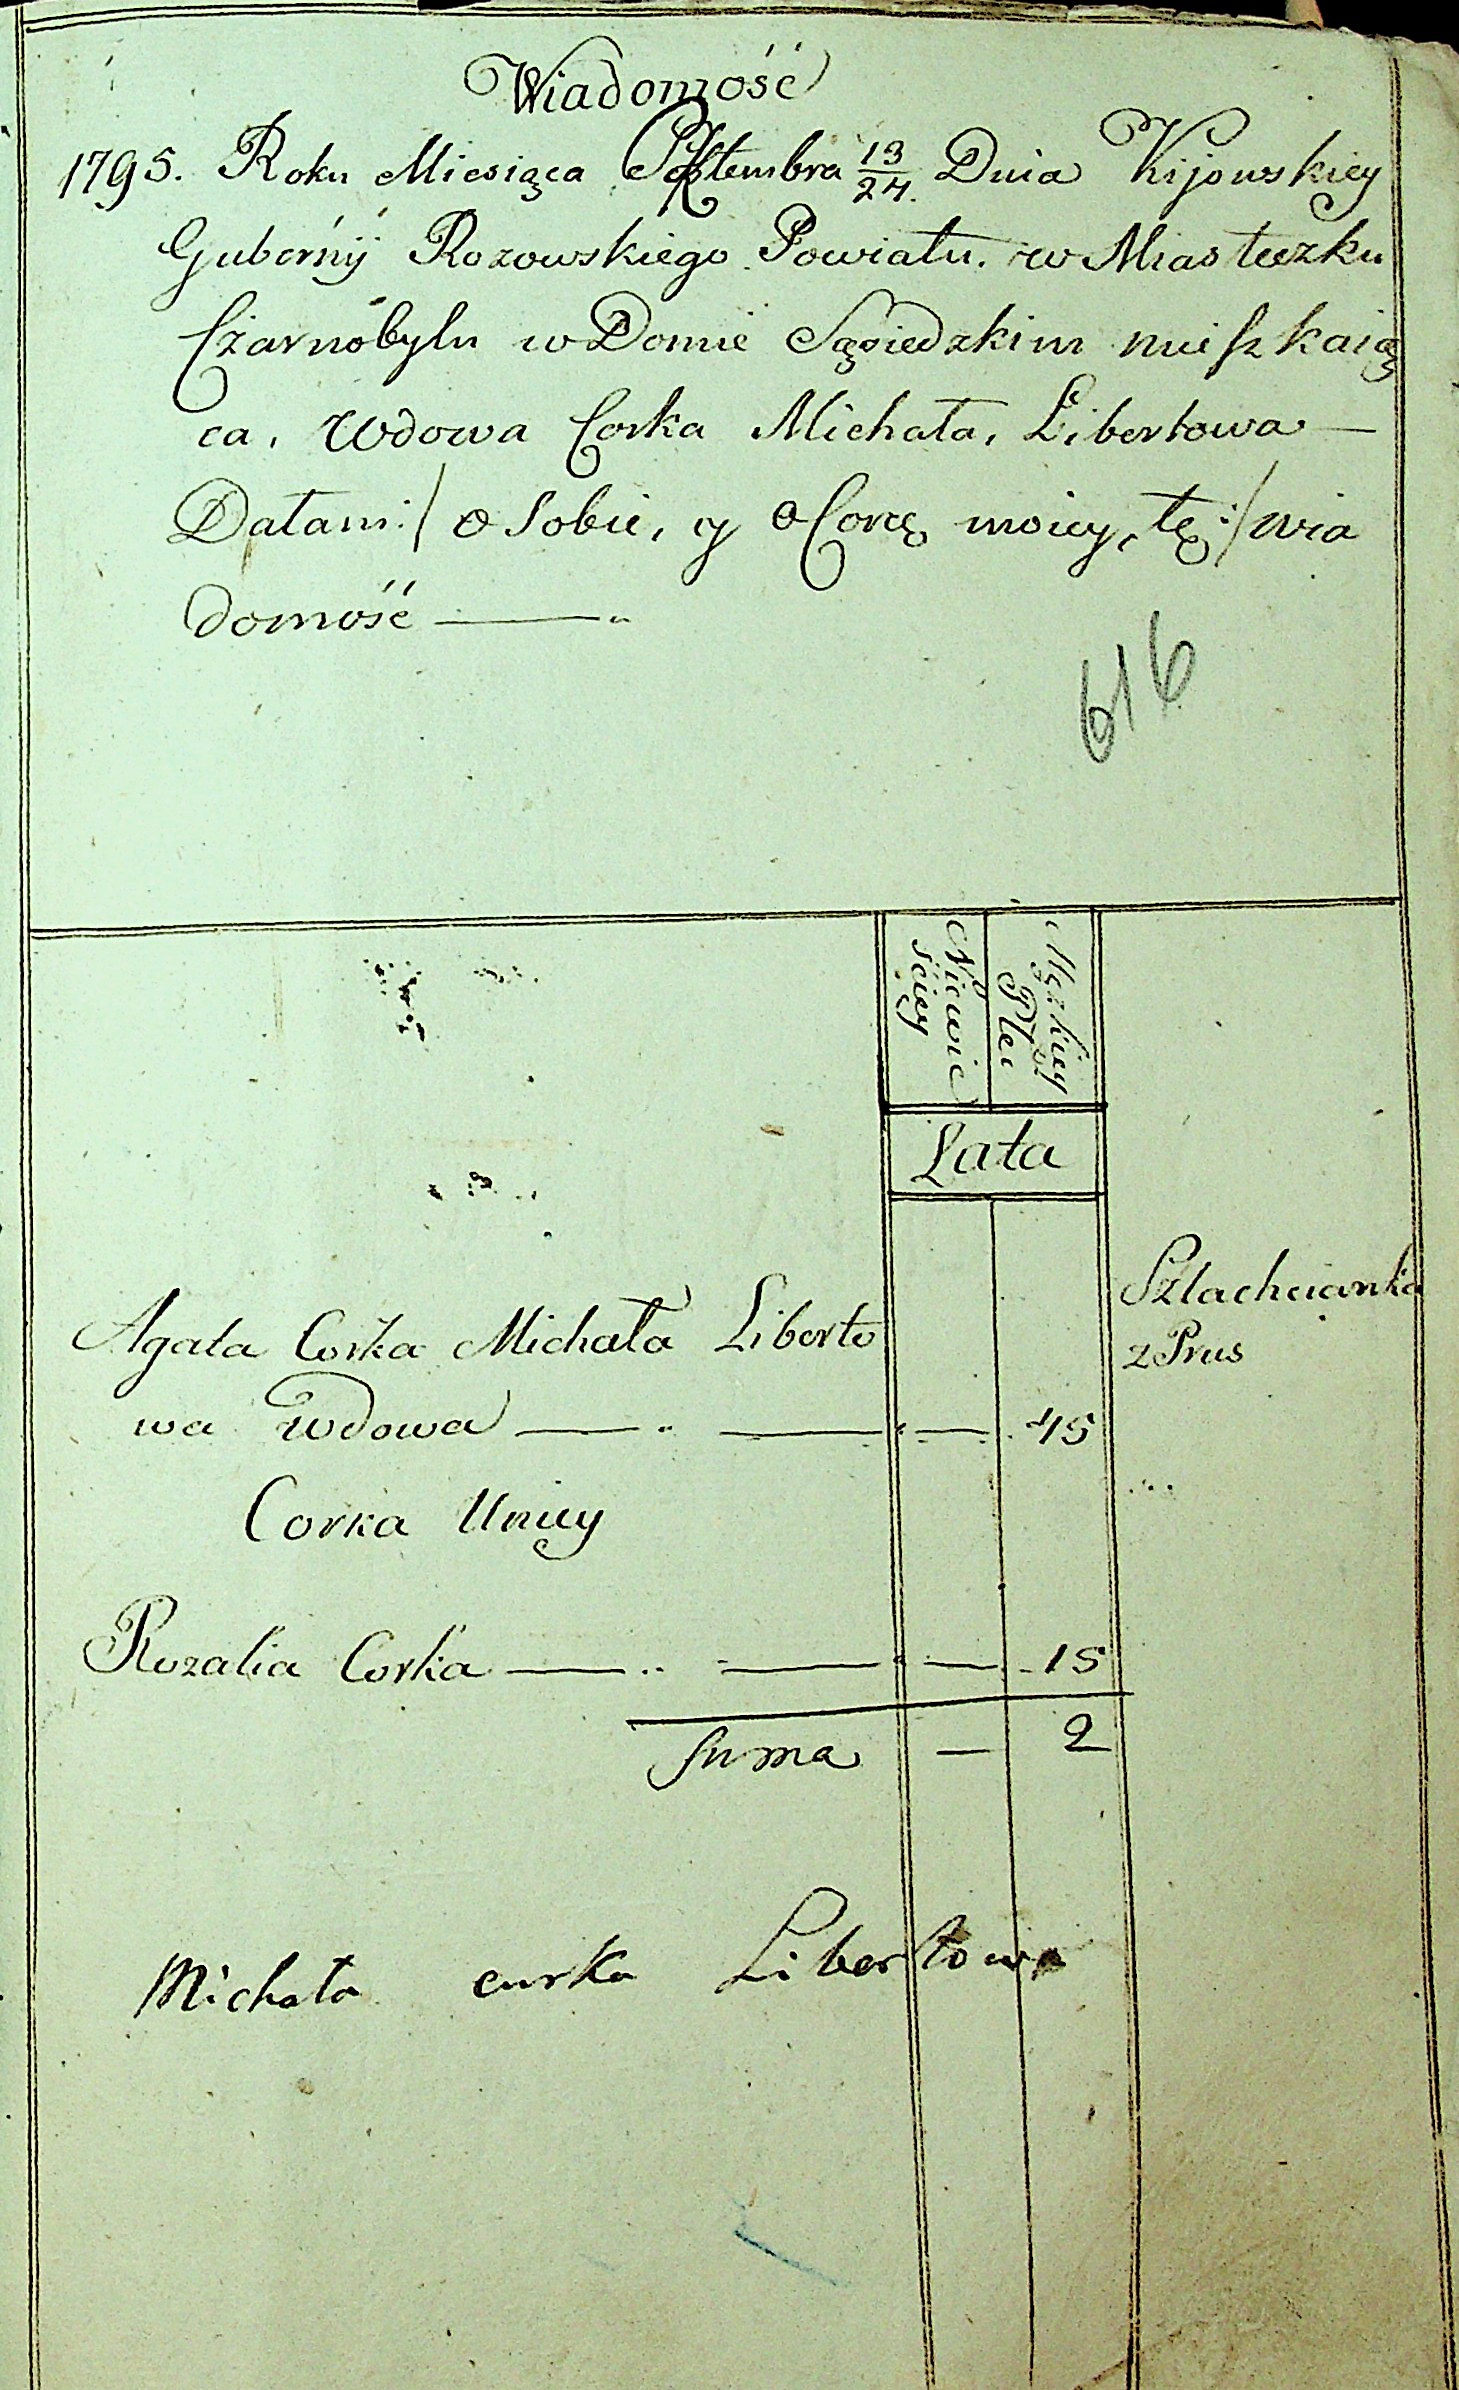 Wiadomość
1795. Roku Miesiąca Septembra 13/24. Dnia Kijowskiey
Gubernÿ Rozowskiego Powiatu. w Miasteczku
Czarnobylu w Domie Sąsiedzkim mieszkaią
ca, Wdowa Corka Michała, Libertowa —
Dałam :/ o Sobie, y o Corcę moiey, tę :/ wia
domość —
616
Niewie
sciey
Męzkiey
Płci
Lata
Szlachcianka
z Prus
Agata Corka Michała Liberto
wa Wdowa — — — 45
Corka Uniey
Rozalia Corka — — — 15
Suma — 2
Michała curka Libertowa